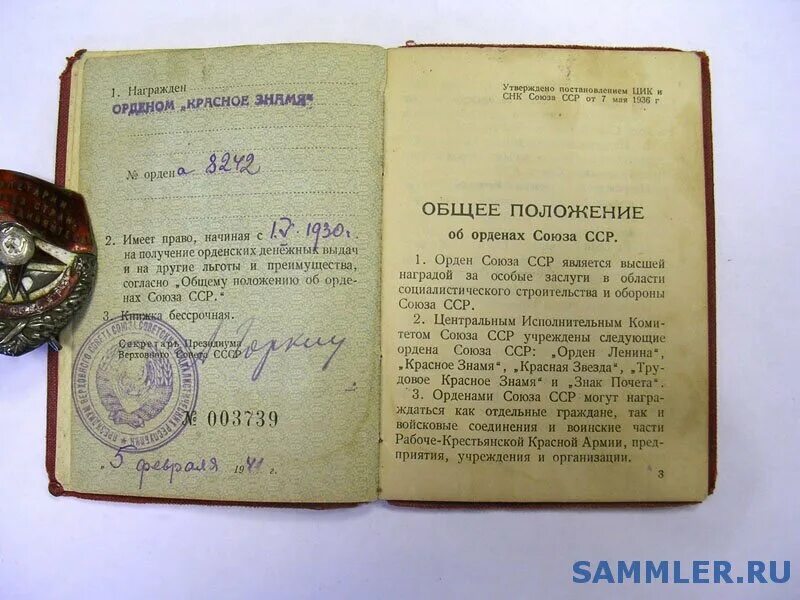 1. Награжден
ОРДЕНОМ „КРАСНОЕ ЗНАМЯ“
№ ордена 8242
2. Имеет право, начиная с 1.V. 1930 г.
на получение орденских денежных выдач
и на другие льготы и преимущества,
согласно „Общему положению об орде-
нах Союза ССР.“
3. Книжка бессрочная.
Секретарь Президиума
Верховного Совета СССР
А. Горкин
№ 003739
„5 февраля 1941 г.
Утверждено постановлением ЦИК и
СНК Союза ССР от 7 мая 1936 г
ОБЩЕЕ ПОЛОЖЕНИЕ
об орденах Союза ССР.
1. Орден Союза ССР является высшей
наградой за особые заслуги в области
социалистического строительства и обороны
Союза ССР.
2. Центральным Исполнительным Коми-
тетом Союза ССР учреждены следующие
ордена Союза ССР: „Орден Ленина“,
„Красное Знамя“, „Красная Звезда“, „Тру-
довое Красное Знамя“ и „Знак Почета“.
3. Орденами Союза ССР могут награ-
ждаться как отдельные граждане, так и
войсковые соединения и воинские части
Рабоче-Крестьянской Красной Армии, пред-
приятия, учреждения и организации.
3
SAMMLER.RU